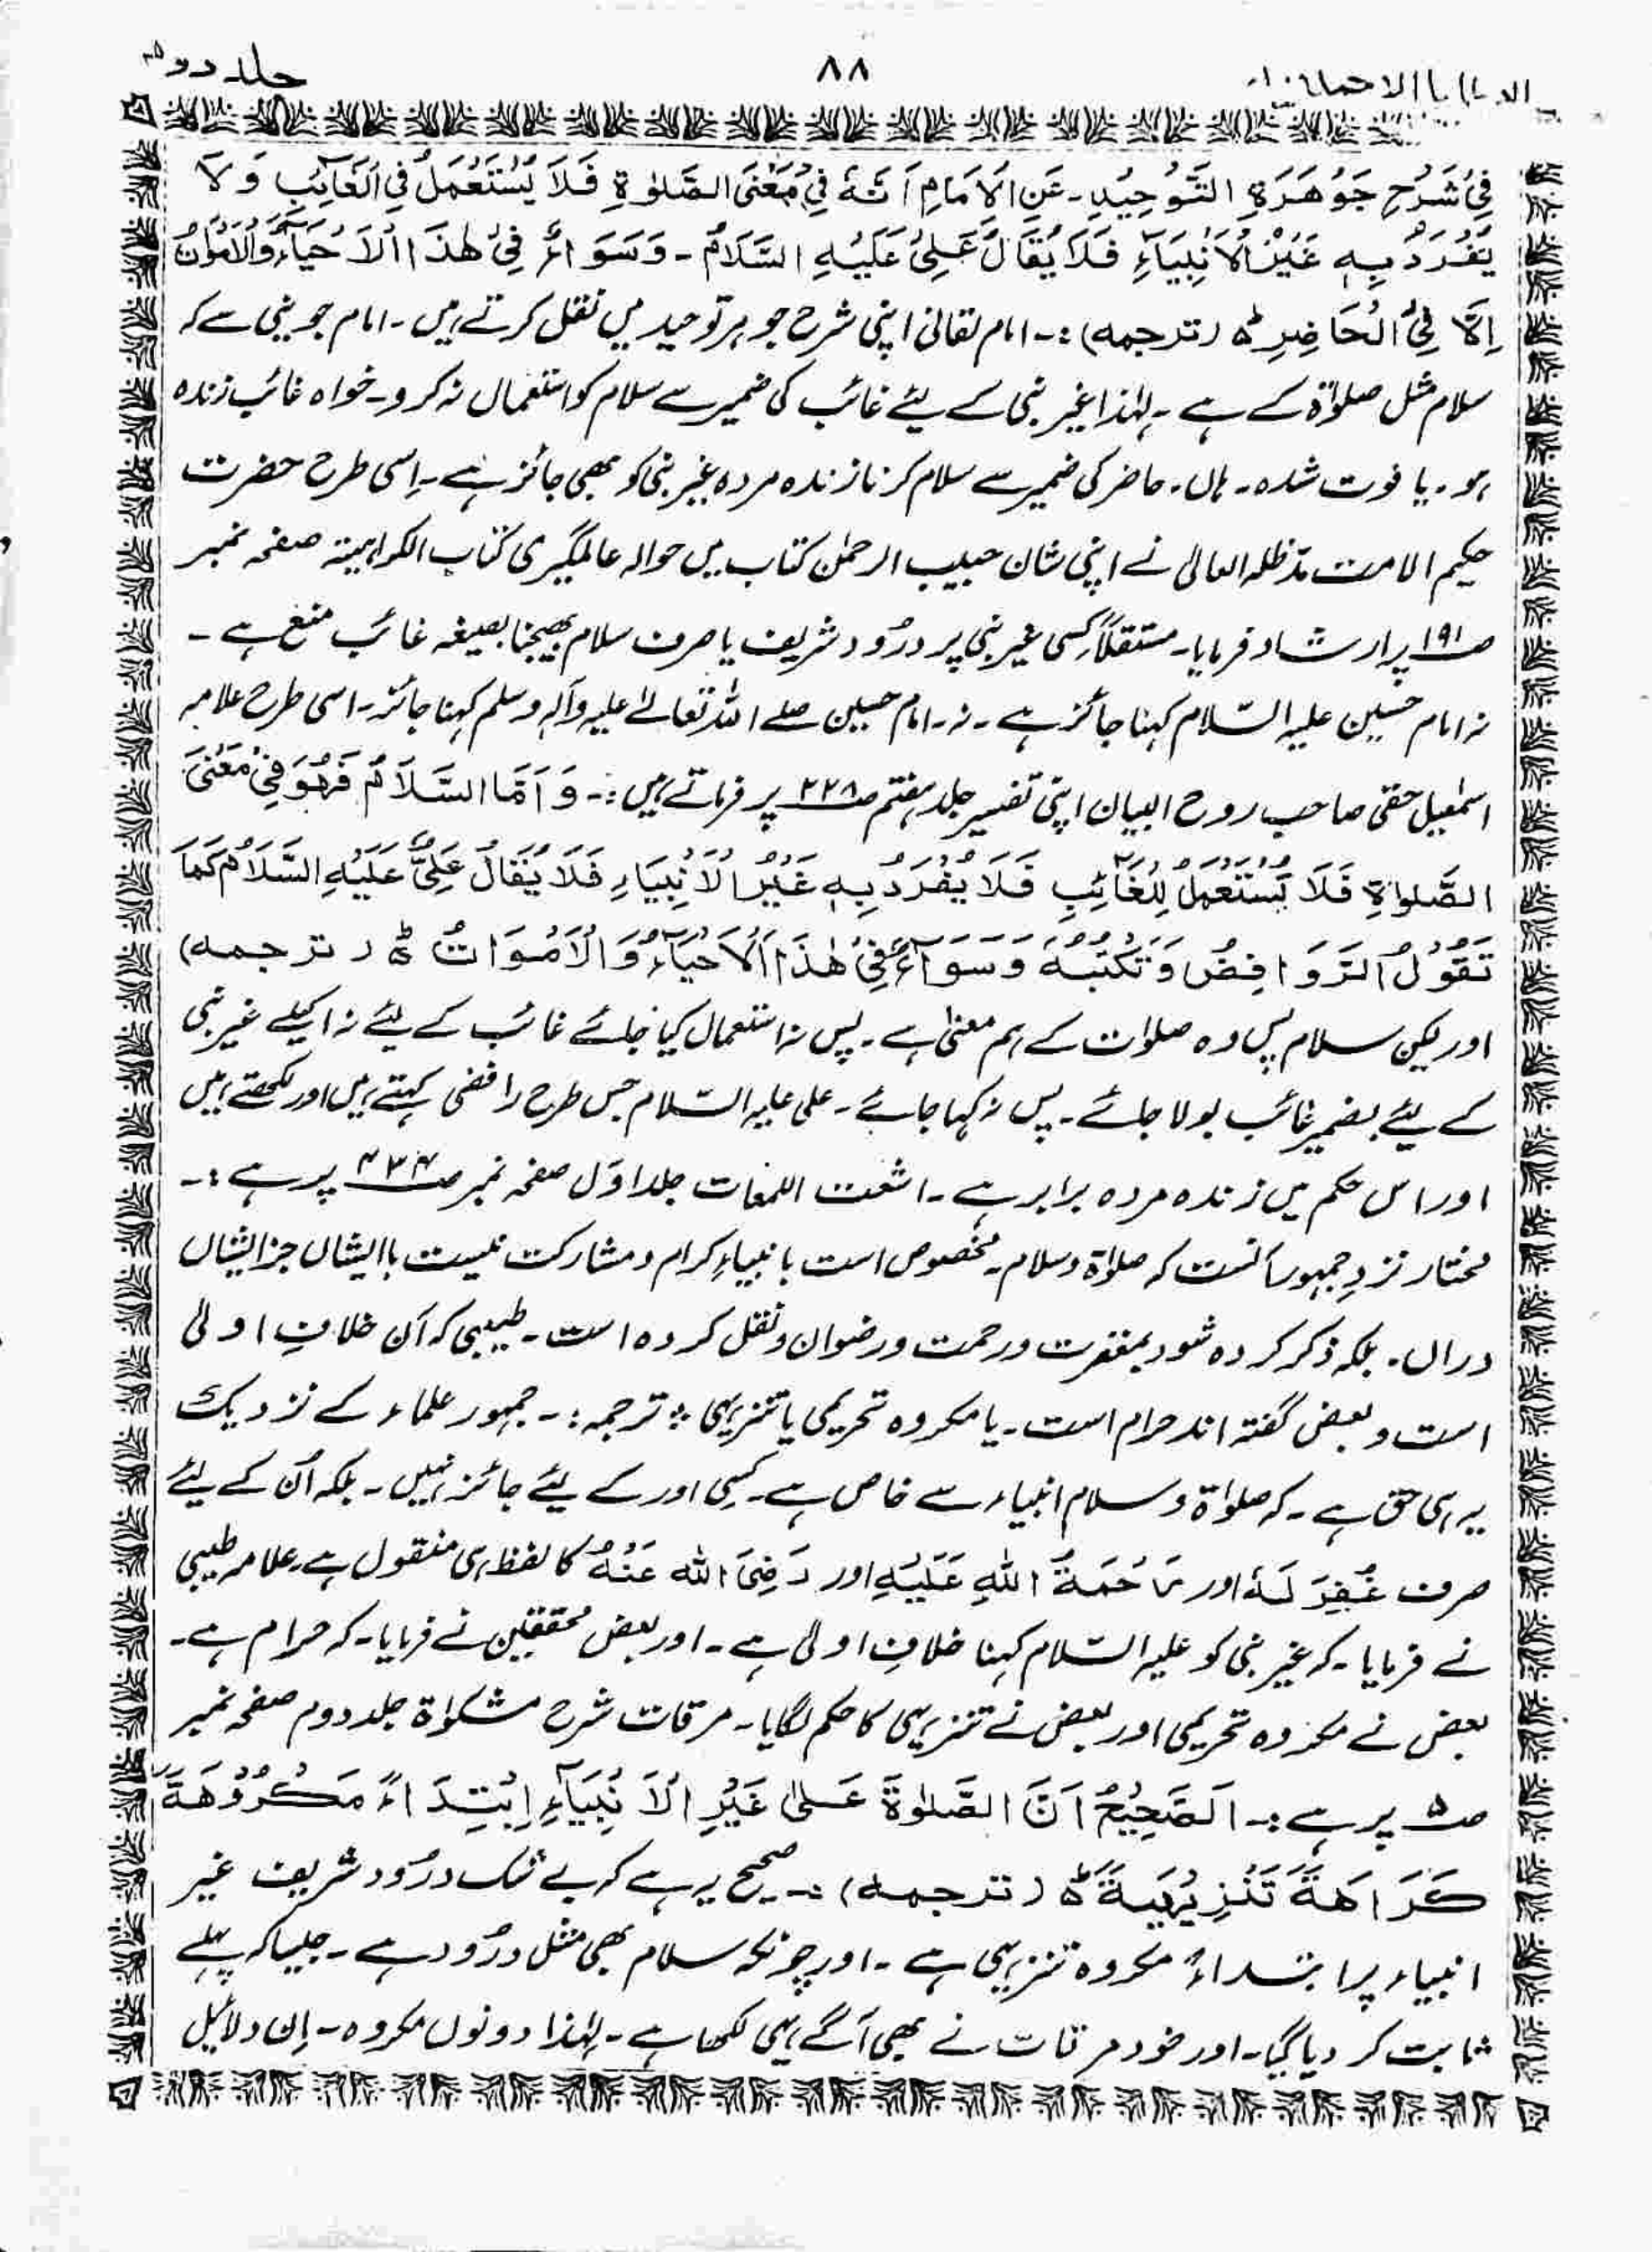 العطایا الاحمدیہ
۸۸
جلد دوم
فِیْ شَرْحِ جَوْهَرَةِ التَّوْحِیْدِ۔ عَنِ الْاِمَامِ اَنَّهٗ فِیْ مَعْنَی الصَّلوٰةِ فَلَا یُسْتَعْمَلُ فِی الْغَائِبِ وَلَا
یُفْرَدُ بِهٖ غَیْرُ الْاَنْبِیَآءِ فَلَا یُقَالُ عَلِیٌّ عَلَیْهِ السَّلَامُ ۔ وَسَوَاءٌ فِیْ هٰذَا الْاَحْیَآءُ وَالْاَمْوَاتُ
اِلَّا فِی الْحَاضِرِ ط (ترجمہ) :۔ امام لقانی اپنی شرح جوہر توحید میں نقل کرتے ہیں ۔ امام جوینی سے کہ
سلام مثل صلوٰۃ کے ہے ۔ لہٰذا غیر نبی کے لیئے غائب کی ضمیر سے سلام کو استعمال نہ کرو ۔ خواہ غائب زندہ
ہو ۔ یا فوت شدہ ۔ ہاں ۔ حاضر کی ضمیر سے سلام کرنا زندہ مردہ غیر نبی کو بھی جائز ہے ۔ اِسی طرح حضرت
حکیم الامت مدظلہ العالی نے اپنی شان حبیب الرحمٰن کتاب میں حوالہ عالمگیری کتاب الکراہیۃ صفحہ نمبر
صـ۱۹۱ پر ارشاد فرمایا ۔ مستقلاً کِسی غیر نبی پر درُود شریف یا صرف سلام بھیجنا بصیغہ غائب منع ہے ۔
نہ امام حسین علیہ السّلام کہنا جائز ہے ۔ نہ ۔ امام حسین صلے اللہ تعالےٰ علیہ وآلہٖ وسلم کہنا جائز ۔ اسی طرح علامہ
اسمٰعیل حقی صاحب روح البیان اپنی تفسیر جلد ہفتم صـ۲۲۸ پر فرماتے ہیں :۔ وَ اَمَّا السَّلَامُ فَهُوَ فِیْ مَعْنَی
الصَّلوٰةِ فَلَا یُسْتَعْمَلُ لِلْغَائِبِ فَلَا یُفْرَدُ بِهٖ غَیْرُ الْاَنْبِیَاءِ فَلَا یُقَالُ عَلِیٌّ عَلَیْهِ السَّلَامُ کَمَا
تَقُوْلُ الرَّوَافِضُ وَتَکْتُبُهٗ وَسَوَآءٌ فِیْ هٰذَا اَلْاَحْیَآءُ وَالْاَمْوَاتُ ط (ترجمہ)
اور لیکن سلام پس وہ صلوات کے ہم معنیٰ ہے ۔ پس نہ استعمال کیا جائے غائب کے لیئے نہ اکیلے غیر نبی
کے لیئے بضمیر غائب بولا جائے ۔ پس نہ کہا جائے ۔ علی علیہ السّلام جس طرح رافضی کہتے ہیں اور لکھتے ہیں
اور اس حکم میں زندہ مردہ برابر ہے ۔ اشعت اللمعات جلد اوّل صفحہ نمبر صـ۴۳۴ پر ہے :۔
مختار نزدِ جمہور آنست کہ صلوٰۃ وسلام ۔ مخصوص است بانبیاءِ کرام ومشارکت نیست باایشاں جز ایشاں
دراں ۔ بلکہ ذکر کردہ شود بمغفرت ورحمت ورضوان ونقل کردہ است ۔ طیبی کہ آن خلافِ اولی
است وبعض گفتہ اند حرام است ۔ یا مکروہ تحریمی یا تنزیہی ؞ ترجمہ :۔ جمہور علماء کے نزدیک
یہ ہی حق ہے ۔ کہ صلوٰۃ وسلام انبیاء سے خاص ہے ۔ کسی اور کے لیئے جائز نہیں ۔ بلکہ اُن کے لیئے
صرف غُفِرَ لَهٗ اور رَحْمَةُ اللهِ عَلَیْهِ اور رَضِیَ اللهُ عَنْهُ کا لفظ ہی منقول ہے ۔ علامہ طیبی
نے فرمایا ۔ کہ غیر نبی کو علیہ السّلام کہنا خلافِ اولیٰ ہے ۔ اور بعض محققین نے فرمایا ۔ کہ حرام ہے ۔
بعض نے مکروہ تحریمی اور بعض نے تنزیہی کا حکم لگایا ۔ مرقات شرح مشکوٰۃ جلد دوم صفحہ نمبر
صـ۵ پر ہے :۔ اَلصَّحِیْحُ اَنَّ الصَّلوٰةَ عَلیٰ غَیْرِ الْاَنْبِیَآءِ اِبْتِدَاءً مَکْرُوْهَةٌ
کَرَاهَةً تَنْزِیْهِیَةً ط (ترجمہ) :۔ صحیح یہ ہے کہ بے شک درُود شریف غیر
انبیاء پر ابتداءً مکروہ تنزیہی ہے ۔ اور چونکہ سلام بھی مثل درُود ہے ۔ جیسا کہ پہلے
ثابت کر دیا گیا ۔ اور خود مرقات نے بھی آگے یہی لکھا ہے ۔ لہٰذا دونوں مکروہ ۔ اِن دلائیل